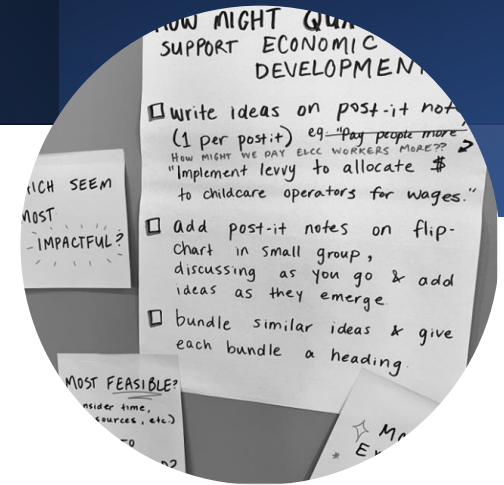 HOW MIGHT
SUPPORT ECONOMIC
DEVELOPMENT
write ideas on post-it
(1 per postit) eg "Pay people more"
HOW MIGHT WE PAY ELCC WORKERS MORE??
"Implement levvy to allocate $
to childcare operators for wages."
add post-it notes on flip-
chart in small group,
discussing as you go & add
ideas as they emerge.
bundle similar ideas & give
each bundle a heading.
SEEM
MOST
IMPACTFUL?
MOST FEASIBLE?
time,
etc.)